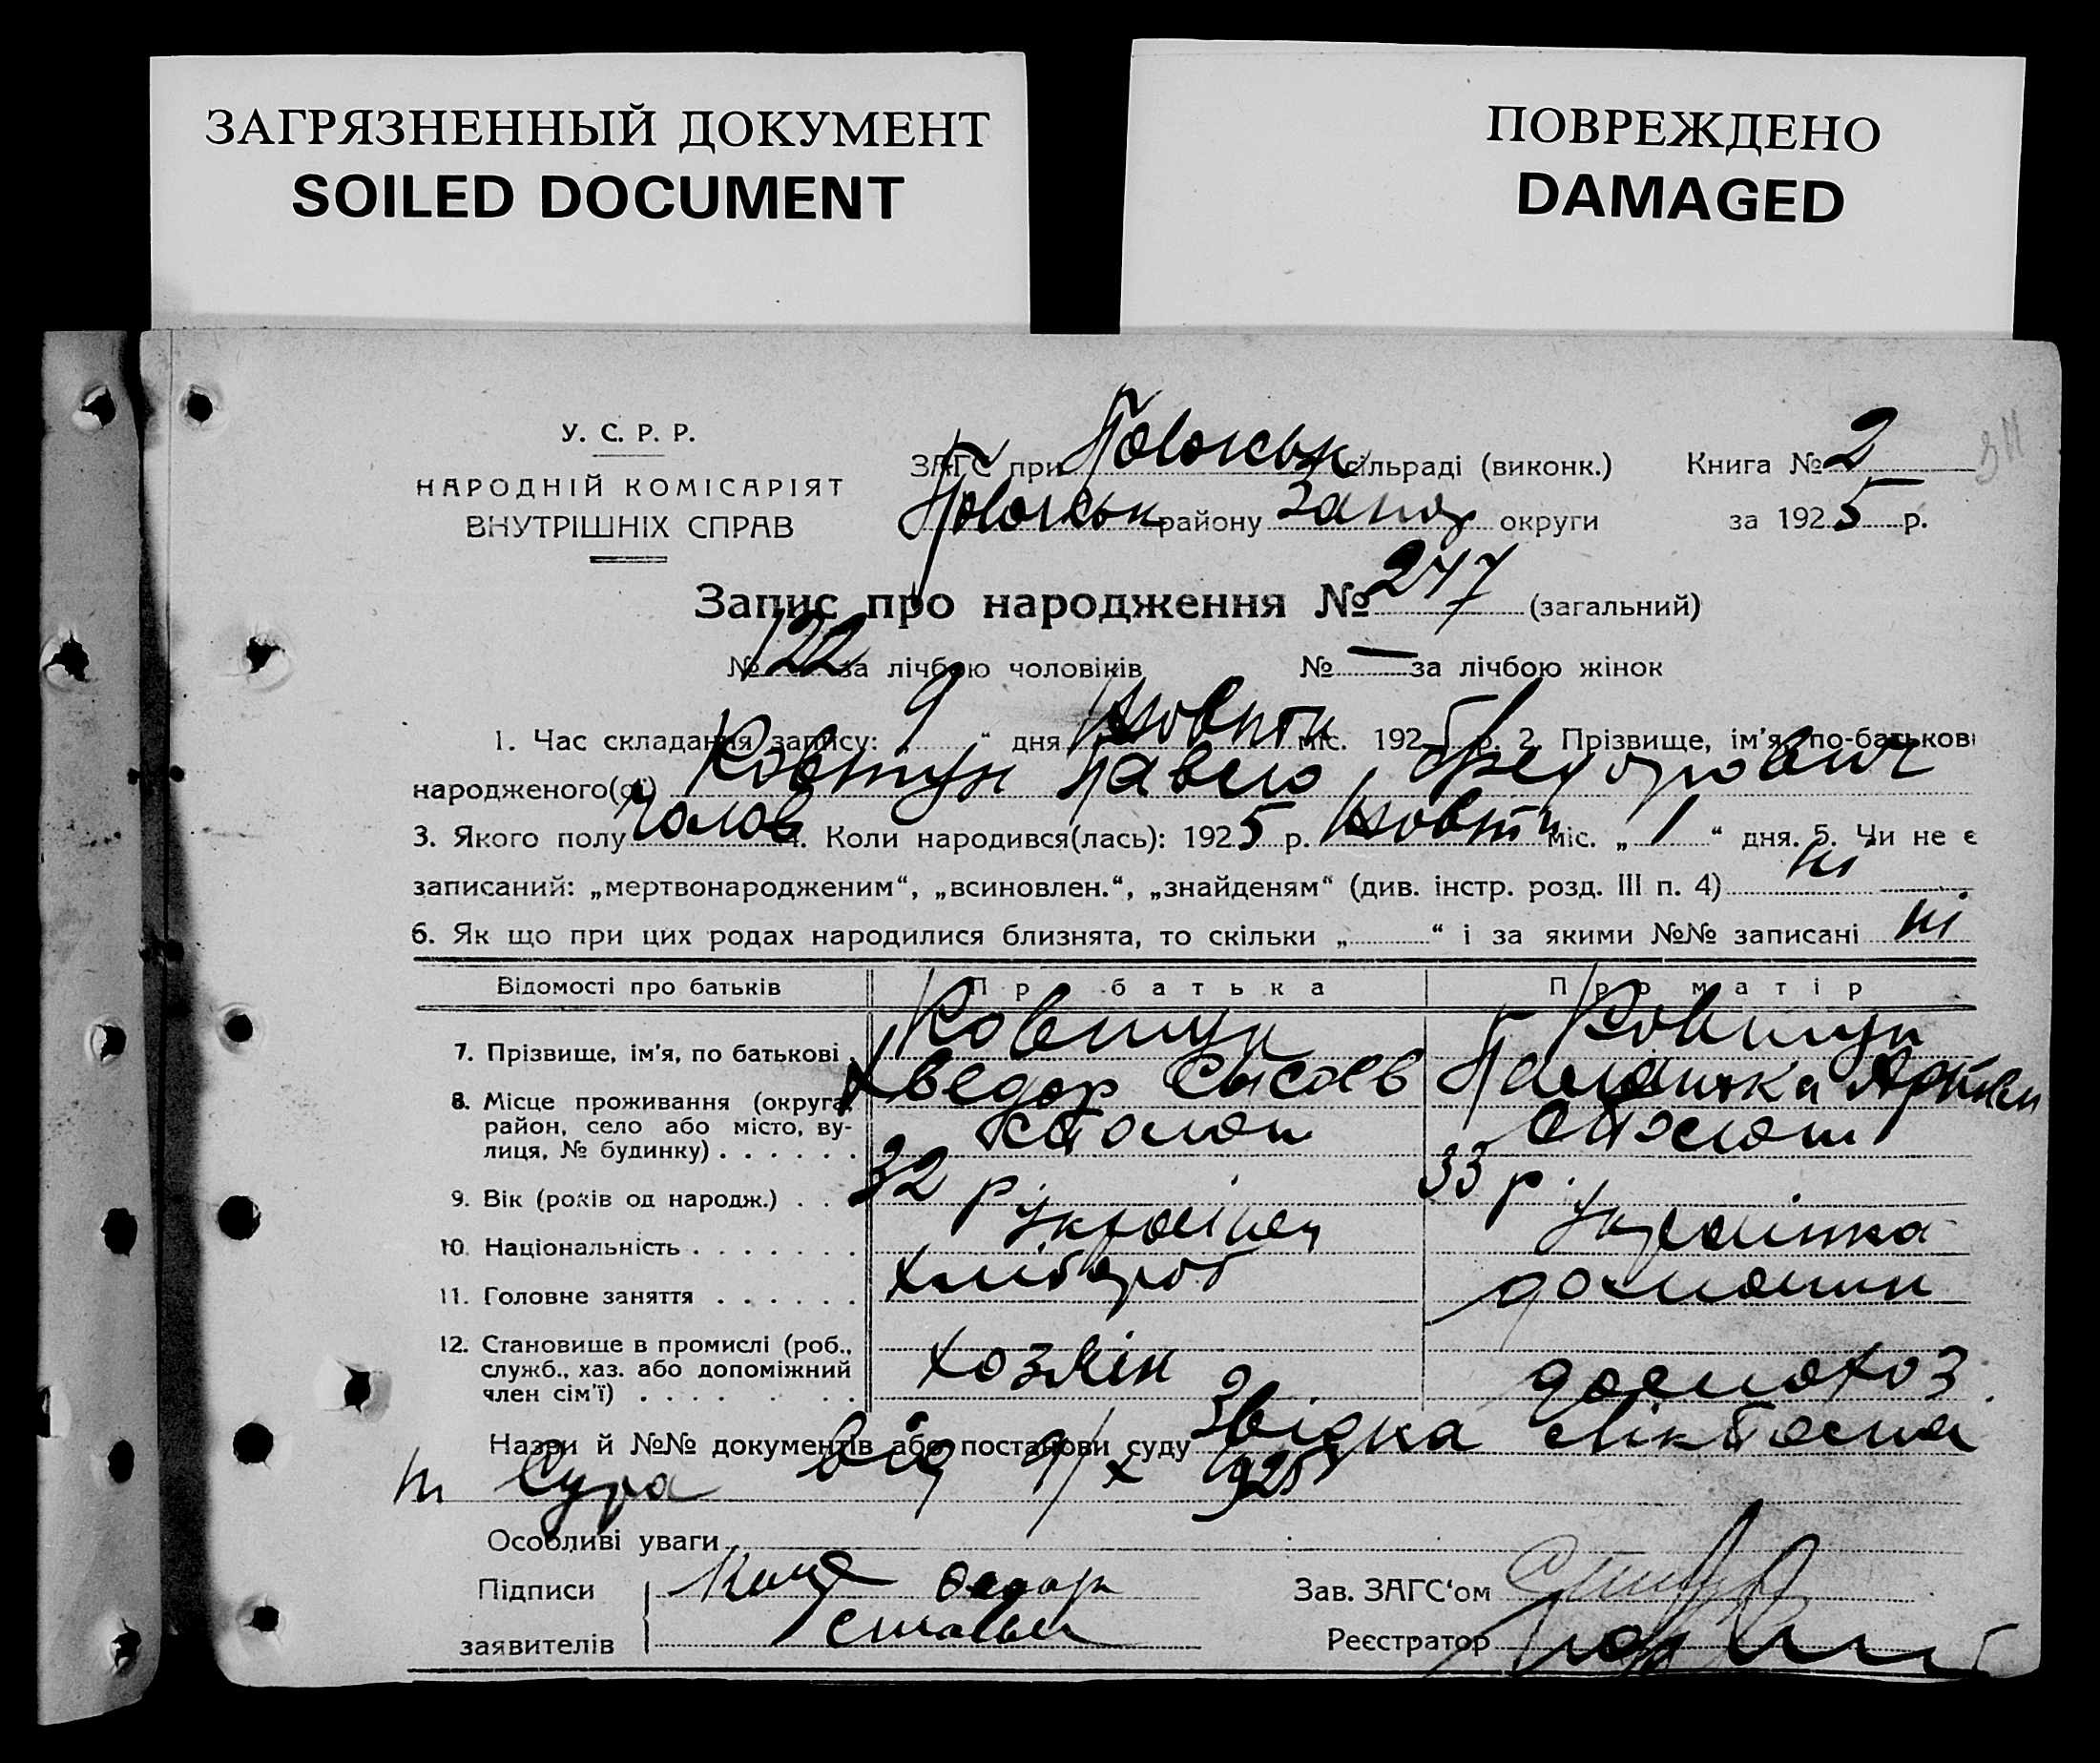 ЗАГРЯЗНЕННЫЙ ДОКУМЕНТ
SOILED DOCUMENT
ПОВРЕЖДЕНО
DAMAGED
У. С. Р. Р.
НАРОДНІЙ КОМІСАРІЯТ
ВНУТРІШНІХ СПРАВ
ЗАГС при сільраді (виконк.) Книга № 2
району Запоз округи за 1925 р.
Запис про народження № 247 (загальний)
№ 122 за лічбою чоловіків № — за лічбою жінок
1. Час складання запису: „ 9 “ дня жовтн міс. 1925 р. 2. Прізвище, ім'я, по-батькові
народженого(ої) Ковтун Павло Федорович
3. Якого полу чолов 4. Коли народився(лась): 1925 р. жовтн міс. „ 1 “ дня. 5. Чи не є
записаний: „мертвонародженим“, „всиновлен.“, „знайденям“ (див. інстр. розд. III п. 4) ні
6. Як що при цих родах народилися близнята, то скільки „ “ і за якими №№ записані ні
Відомості про батьків Про батька Про матір
7. Прізвище, ім'я, по батькові Ковтун Ковтун
Хведор Сысоєв
8. Місце проживання (округа, район, село або місто, вулиця, № будинку)
9. Вік (років од народж.) 32 р 33 р.
10. Національність українец українка
11. Головне заняття хлібороб домашн
12. Становище в промислі (роб., служб., хаз. або допоміжний член сім'ї) хозяїн домохоз.
Назви й №№ документів або постанови суду
від 9/X 1925
Особливі уваги
Підписи
заявителів
Зав. ЗАГС'ом
Реєстратор